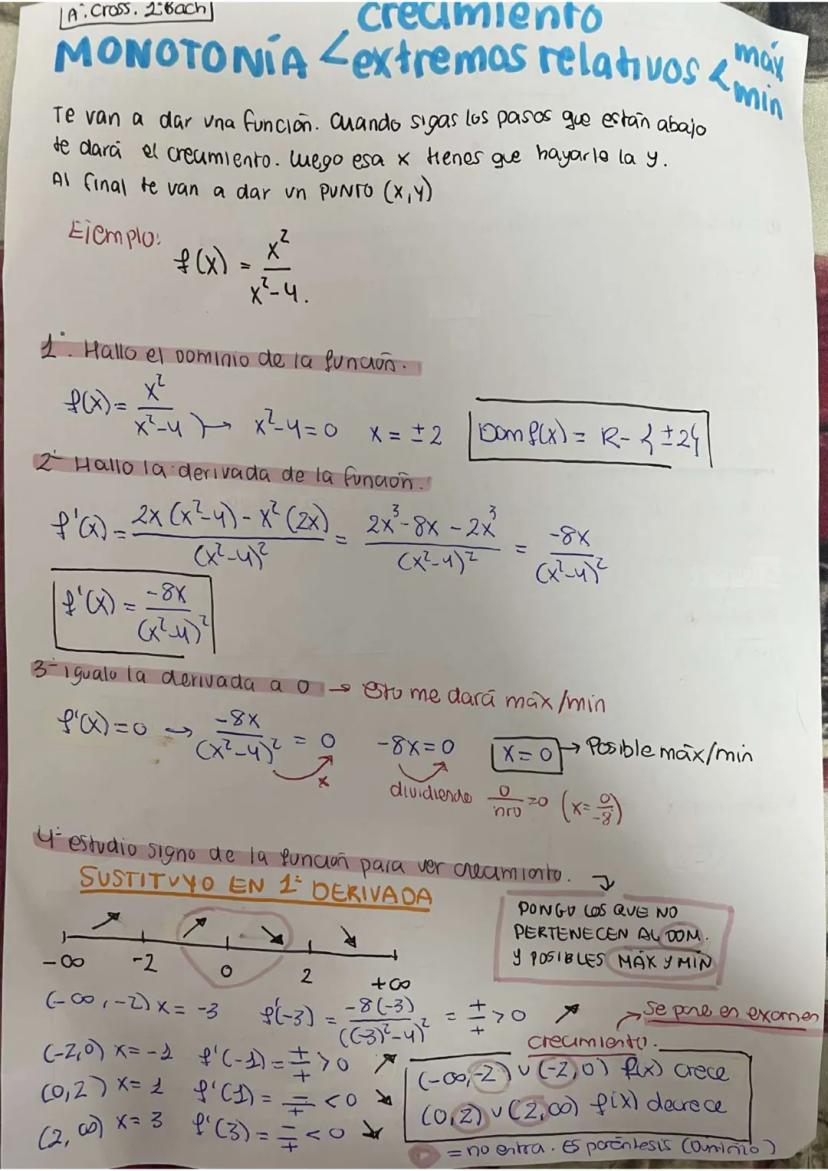 A. Cross. 1ºBach
crecimiento
MONOTONÍA < extremos relativos < máx
min
Te van a dar una función. Cuando sigas los pasos que están abajo
te dará el crecimiento. Luego esa x tienes que hayarle la y.
Al final te van a dar un PUNTO (x,y)
Ejemplo: f(x) = x²/(x²-4).
1º. Hallo el dominio de la función.
f(x) = x²/(x²-4) → x²-4=0 x = ±2 Dom f(x) = R - {±2}
2º Hallo la derivada de la función.
f'(x) = (2x(x²-4) - x²(2x))/(x²-4)² = (2x³-8x-2x³)/(x²-4)² = -8x/(x²-4)²
f'(x) = -8x/(x²-4)²
3º igualo la derivada a 0 → Esto me dará máx/min
f'(x)=0 → -8x/(x²-4)² = 0 -8x=0 x=0 → Posible máx/min
x dividiendo 0/nro=0 (x=0/-8)
4º estudio signo de la función para ver crecimiento.
SUSTITUYO EN 1ª DERIVADA
PONGO LOS QUE NO
PERTENECEN AL DOM.
Y POSIBLES MÁX Y MÍN
-∞ -2 0 2 +∞
(-∞,-2) x = -3 f'(-3) = -8(-3)/((-3)²-4)² = +/+ > 0 ↗ → Se pone en examen
crecimiento.
(-2,0) x = -1 f'(-1) = +/+ > 0 ↗
(-∞,-2) ∪ (-2,0) f(x) crece
(0,2) x = 1 f'(1) = -/+ < 0 ↘
(0,2) ∪ (2,∞) f(x) decrece
(2,∞) x = 3 f'(3) = -/+ < 0 ↘
= no entra. Es paréntesis (dominio)